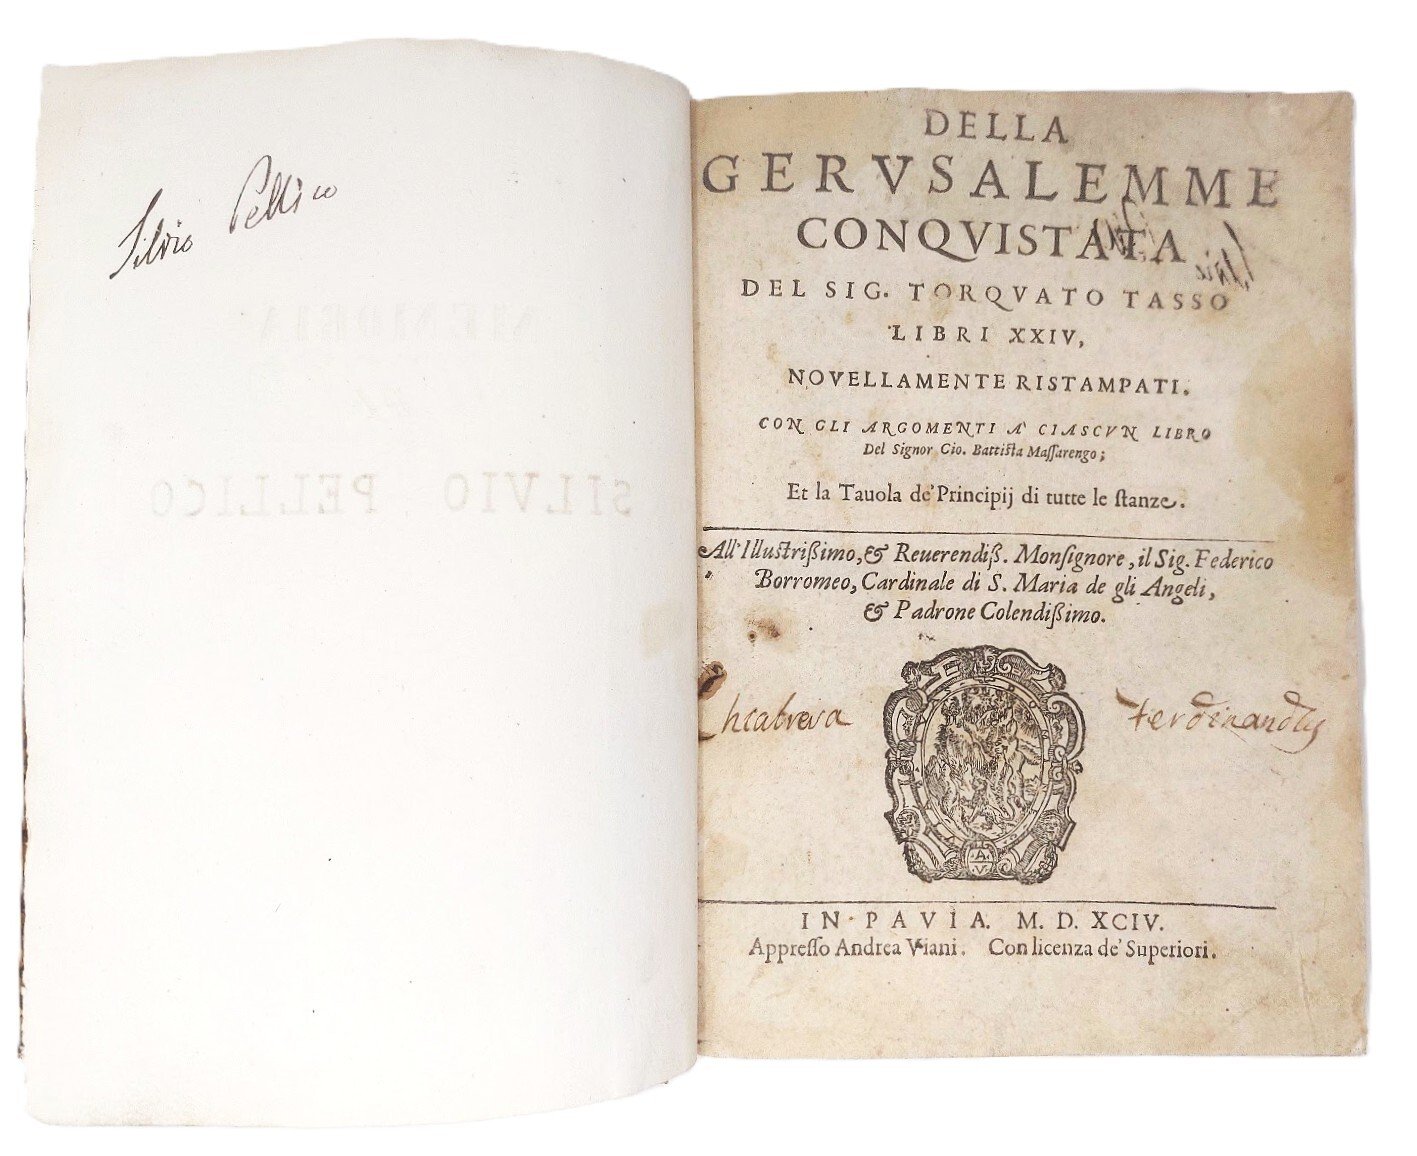 Silvio Pellico
SILVIO PELLICO
DELLA
GERVSALEMME
CONQVISTATA
DEL SIG. TORQVATO TASSO
LIBRI XXIV,
NOVELLAMENTE RISTAMPATI.
CON GLI ARGOMENTI A' CIASCVN LIBRO
Del Signor Gio. Battiſta Maſſarengo;
Et la Tauola de' Principij di tutte le ſtanze.
All'Illuſtrißimo, & Reuerendiß. Monſignore, il Sig. Federico
Borromeo, Cardinale di S. Maria de gli Angeli,
& Padrone Colendißimo.
Ferdinandus
A.
V.
IN PAVIA. M. D. XCIV.
Appreſſo Andrea Viani. Con licenza de' Superiori.